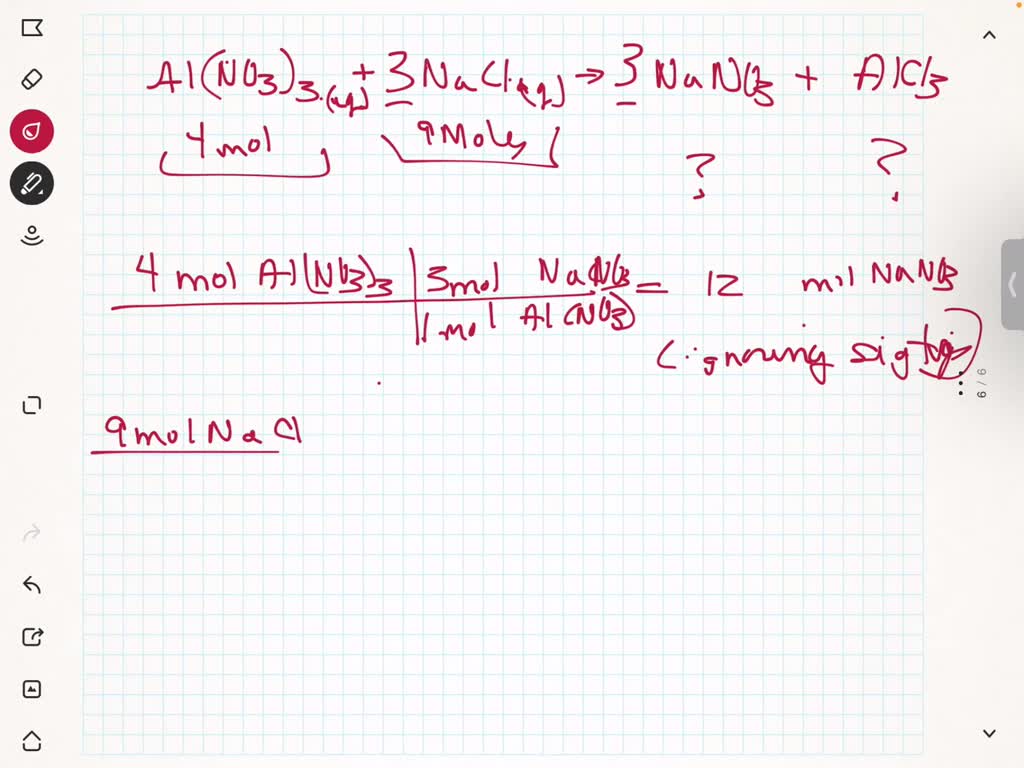 Al(NO3)3(aq) + 3NaCl(aq) → 3NaNO3 + AlCl3
4mol 9Moles ? ?
4 mol Al(NO3)3 | 3mol NaNO3 = 12 mol NaNO3
1 mol Al(NO3)
(ignoring sigfigs)
9molNaCl
6/6